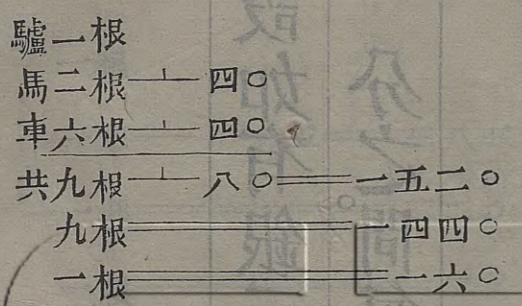 驢一根
馬二根⊥四〇
車六根⊥四〇
共九根⊥八〇＝一五二〇
九根＝一四四〇
一根＝一六〇